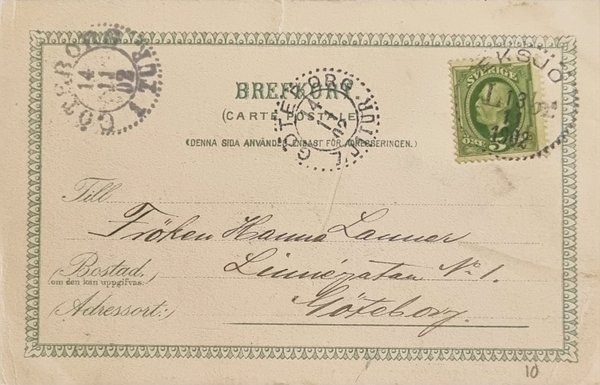 GÖTEBORG 1 TUR
14
11
02
BREFKORT
(CARTE POSTALE)
(DENNA SIDA ANVÄNDES ENBAST FÖR ADRESSERINGEN.)
GÖTEBORG 1 TUR
14
11
02
EKSJÖ
13
1902
SVERIGE
5
ÖRE
Till
Fröken Hanna Lanner
Bostad.
(om den kan uppgifvas:)
Linnégatan No 1.
Adressort:
Göteborg.
10